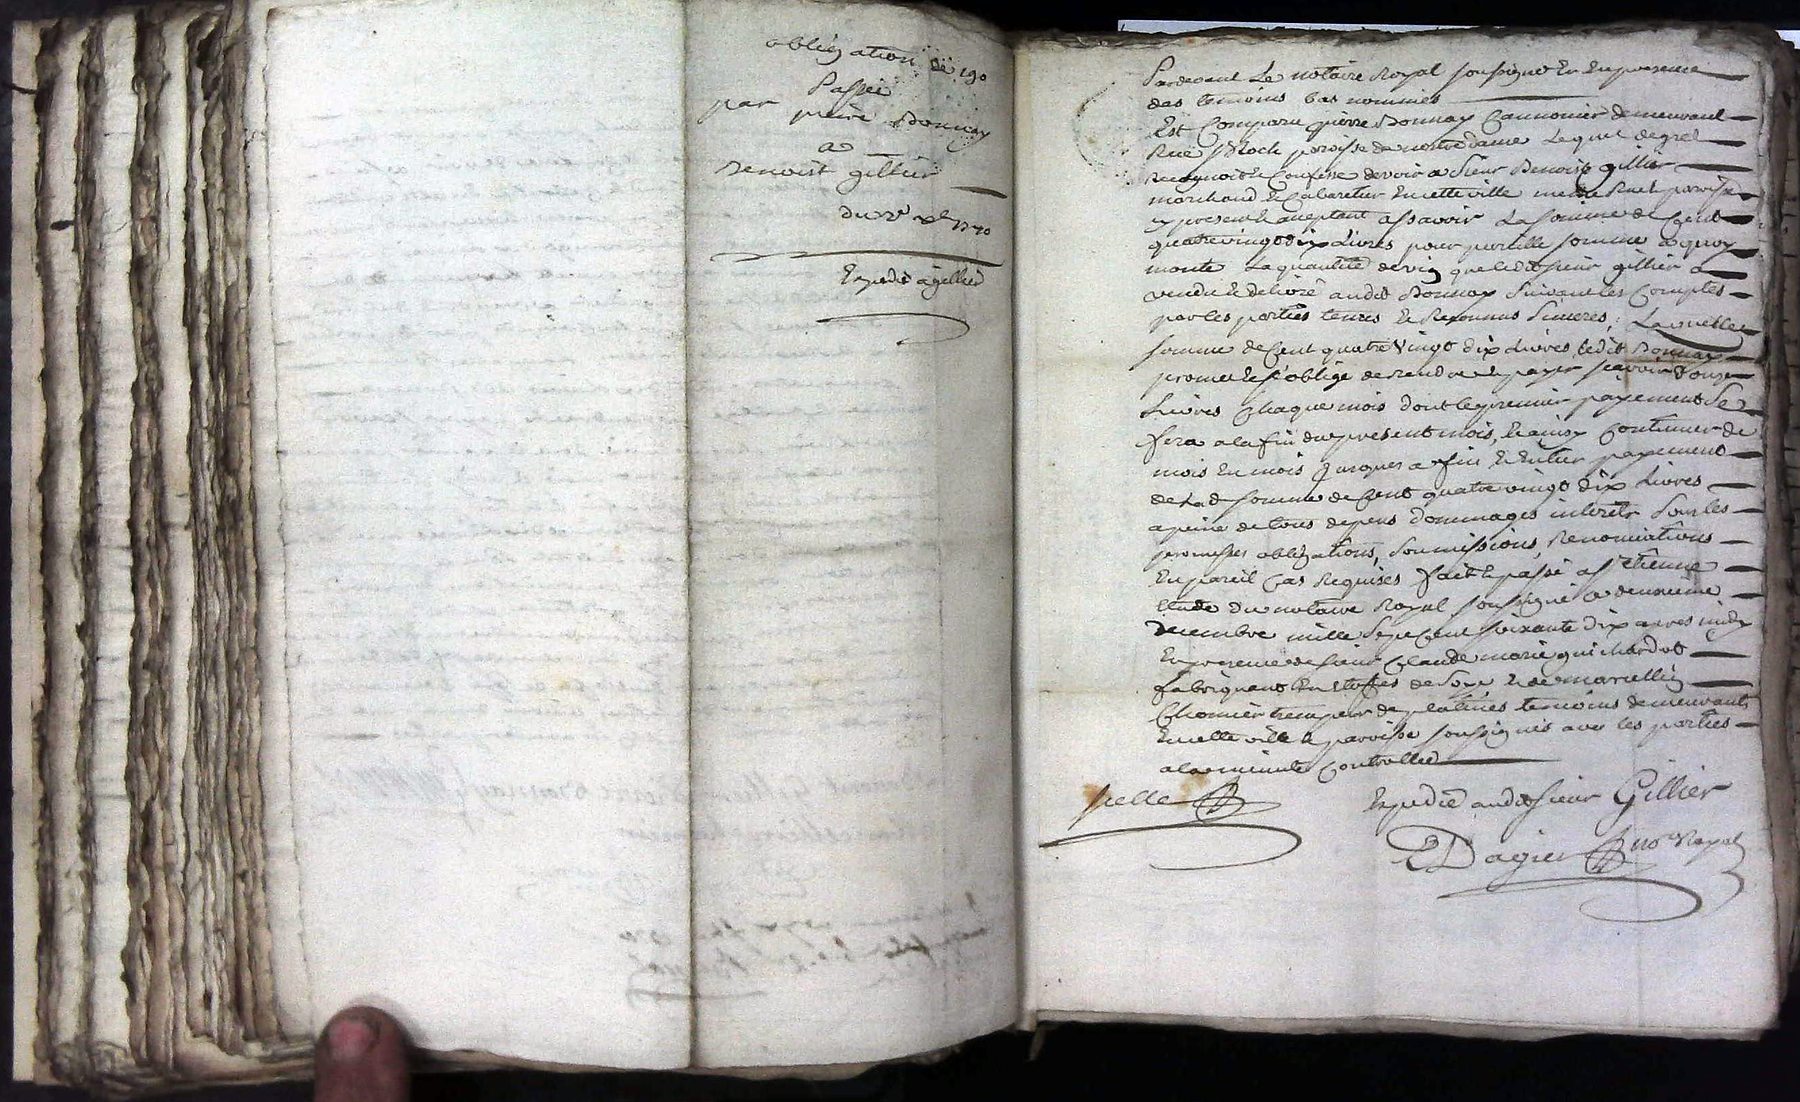 obligation de 190
Passée
par pierre Bonnay
a
Benoist gillier
du 2e xbre 1770
Expedié a gillier
Pardevant Le notaire Royal soussigné En En presence
des temoins bas nommés
Est Comparu pierre Bonnay Cannonier demeurant
Rue St Roch paroisse de notre dame Lequel de gré
reconnoit & Confesse devoir a Sieur Benoist gillier
marchand & Cabaretier En cette ville meme Rue & paroisse
cy present & acceptant assavoir La somme de Cent
quatre vingt dix Livres pour pareille somme a quoy
monte La quantité de vin que ledit sieur gillier a
vendu & delivré audit Bonnay Suivant les Comptes
par les parties tenus & Reconnus Sinceres, Laquelle
somme de Cent quatre Vingt dix Livres ledit Bonnay
promet & s'oblige de rendre & payer sçavoir douze
Livres Chaque mois dont le premier payement Se
fera a la fin du present mois, & ainsy Continuer de
mois En mois jusques a fin & Entier payement
de Lad somme de Cent quatre vingt dix Livres
a peine de tous depens dommages interets Sous les
promesses obligations, Soumissions, Renonciations
En pareil Cas Requises fait & passé a St Etienne
Etude du notaire Royal soussigné ce deuxieme
Decembre mille Sept Cent soixante dix apres midy
En presence de sieur Claude marie guichardot
fabriquant En Etoffes de Soye & de marcellin
Chomier trempeur de platines temoins demeurants
En cette ville & paroisse soussignés avec les parties
a la minute Controllée
Expedié audit sieur Gillier
Dagier no.re Royal